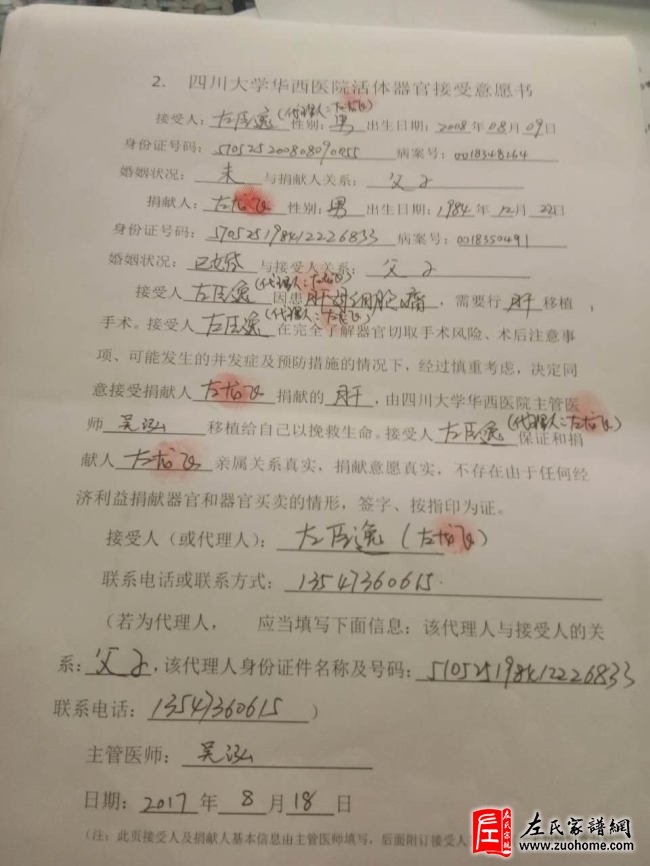 2. 四川大学华西医院活体器官接受意愿书
(代理人:左龙飞)
接受人:左臣逸 性别:男 出生日期:2008年08月09日
身份证号码:510525200808090455 病案号:0018348164
婚姻状况:未 与捐献人关系:父子
捐献人:左龙飞 性别:男 出生日期:1984年12月22日
身份证号码:510525198412226833 病案号:0018350491
婚姻状况:已婚 与接受人关系:父子
(代理人:左龙飞)
接受人左臣逸因患肝母细胞瘤,需要行肝移植,
(代理人:左龙飞)
手术。接受人左臣逸在完全了解器官切取手术风险、术后注意事
项、可能发生的并发症及预防措施的情况下,经过慎重考虑,决定同
意接受捐献人左龙飞捐献的肝,由四川大学华西医院主管医
师吴泓移植给自己以挽救生命。接受人左臣逸(代理人:左龙飞)保证和捐
献人左龙飞亲属关系真实,捐献意愿真实,不存在由于任何经
济利益捐献器官和器官买卖的情形,签字、按指印为证。
接受人(或代理人):左臣逸(左龙飞)
联系电话或联系方式:13547360615
(若为代理人, 应当填写下面信息:该代理人与接受人的关
系:父子,该代理人身份证件名称及号码:510525198412226833
联系电话:13547360615)
主管医师:吴泓
日期:2017年8月18日
(注:此页接受人及捐献人基本信息由主管医师填写,后面附订接受人
左氏家谱網
www.zuohome.com